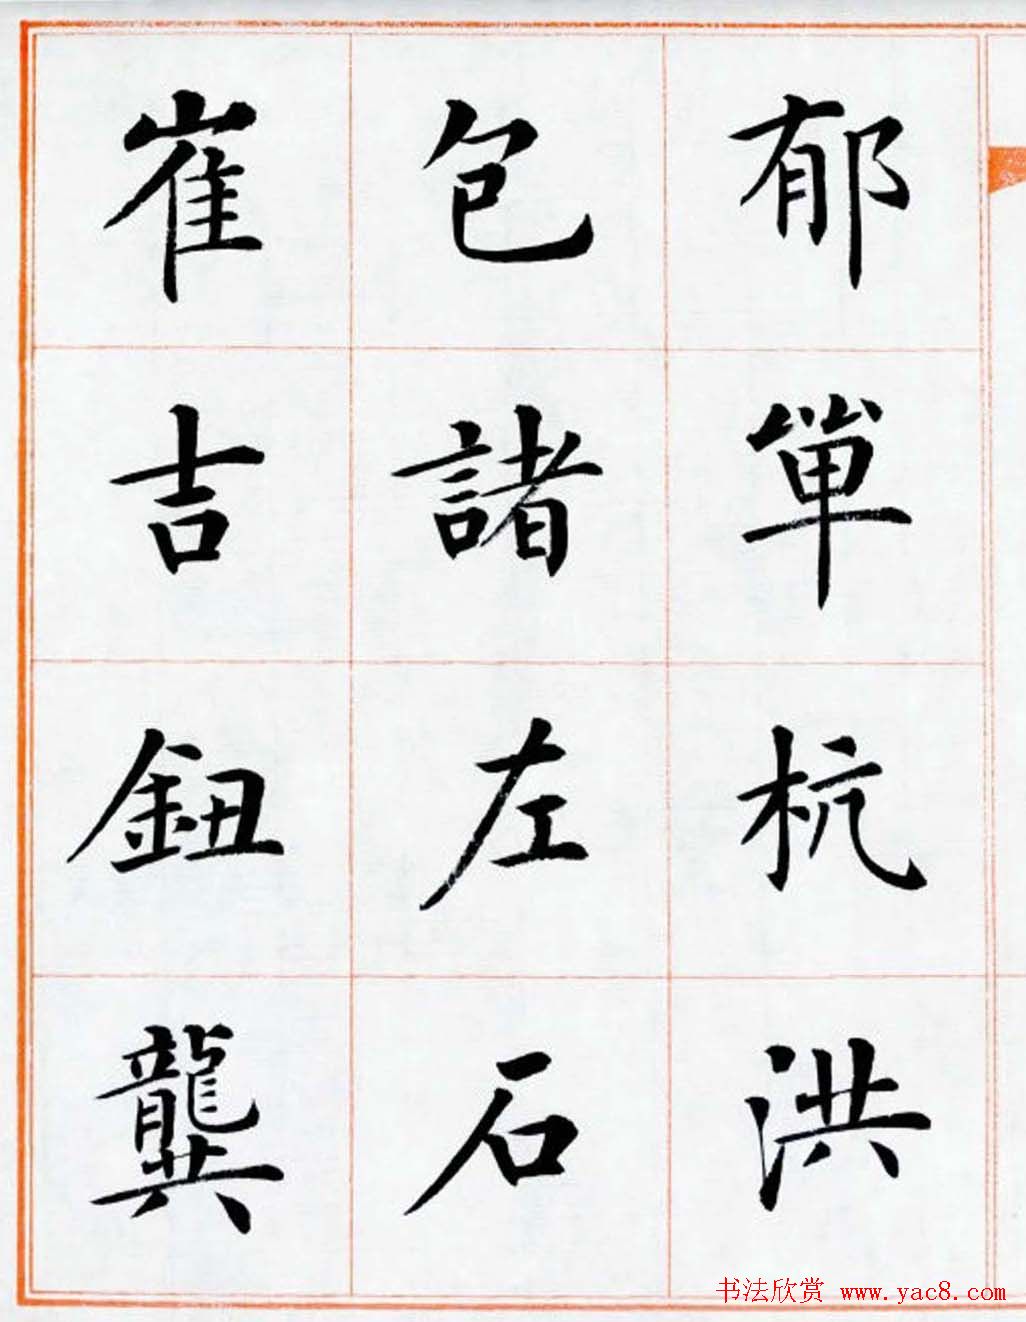 郁單杭洪
包諸左石
崔吉鈕龔
书法欣赏 www.yac8.com